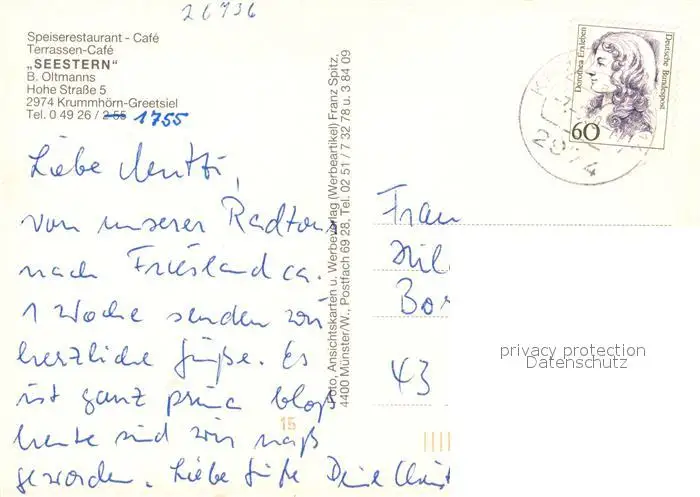 26736
Speiserestaurant - Café
Terrassen-Café
„SEESTERN“
B. Oltmanns
Hohe Straße 5
2974 Krummhörn-Greetsiel
Tel. 0 49 26 / 2 55 1755
Liebe Mutti,
von unserer Radtour
nach Friesland ca.
1 Woche senden wir
herzliche Grüße. Es
ist ganz prima bloß
heute sind wir naß
geworden. Liebe Grüße Deine
Foto, Ansichtskarten u. Werbeverlag (Werbeartikel) Franz Spitz,
4400 Münster/W., Postfach 69 28, Tel. 02 51 / 7 32 78 u. 3 84 09
15
Dorothea Erxleben
Deutsche Bundespost
60
2974
Frau
Hil
Bor
43
privacy protection
Datenschutz